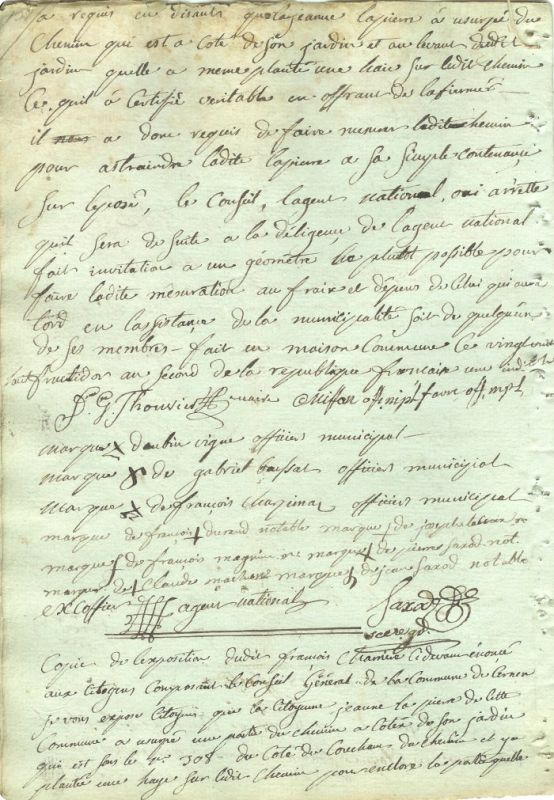 a requis en disants que la jeanne lapierre à usurpé du
Chemin qui est a Coté de son jardin et au levant dudit
jardin quelle a meme planté une haie sur ledit chemin
Ce quil à Certifié veritable en offrant de lafirmer
il a donc requis de faire mesurer ledit chemin
pour astraindre ladite lapierre a sa simple Contenance
Sur lexposé, le Conseil, lagent national, oui arrette
quil sera de suite a la diligence, de lagent national
fait invitation a un geomètre le plutot possible pour
faire ladite mesuration au frais et depens de Celui qui aura
tord en lassistance de la municipalité soit de quelquun
de ses membres - fait en maison Commune Ce vingt
fructidor an second de la republique francaise une
G. Thouvier maire offi. mpl favre off. mpl
marque daubin vigne officier municipal
marque de gabriel officier municipal
marque de françois officier municipal
marque de françois durand notable marque de joseph
marque de françois magnin marque de pierre Saxod not.
marque de Claude marque de jean Saxod notable
Excoffier agent national Saxod
secre. gd.
Copie de lexposition dudit francois Cidevant énoncé
aux Citoyens Composant le Conseil Général de la Commune de
Je vous expose Citoyens que la Citoyenne jeanne la pierre de Cette
Commune a usurpé une porte du chemin a Coté de son jardin
qui est sous le no. 308 du Coté du Couchant du chemin et y a
plantée une haye sur ledit Chemin pour enclore la partie quelle